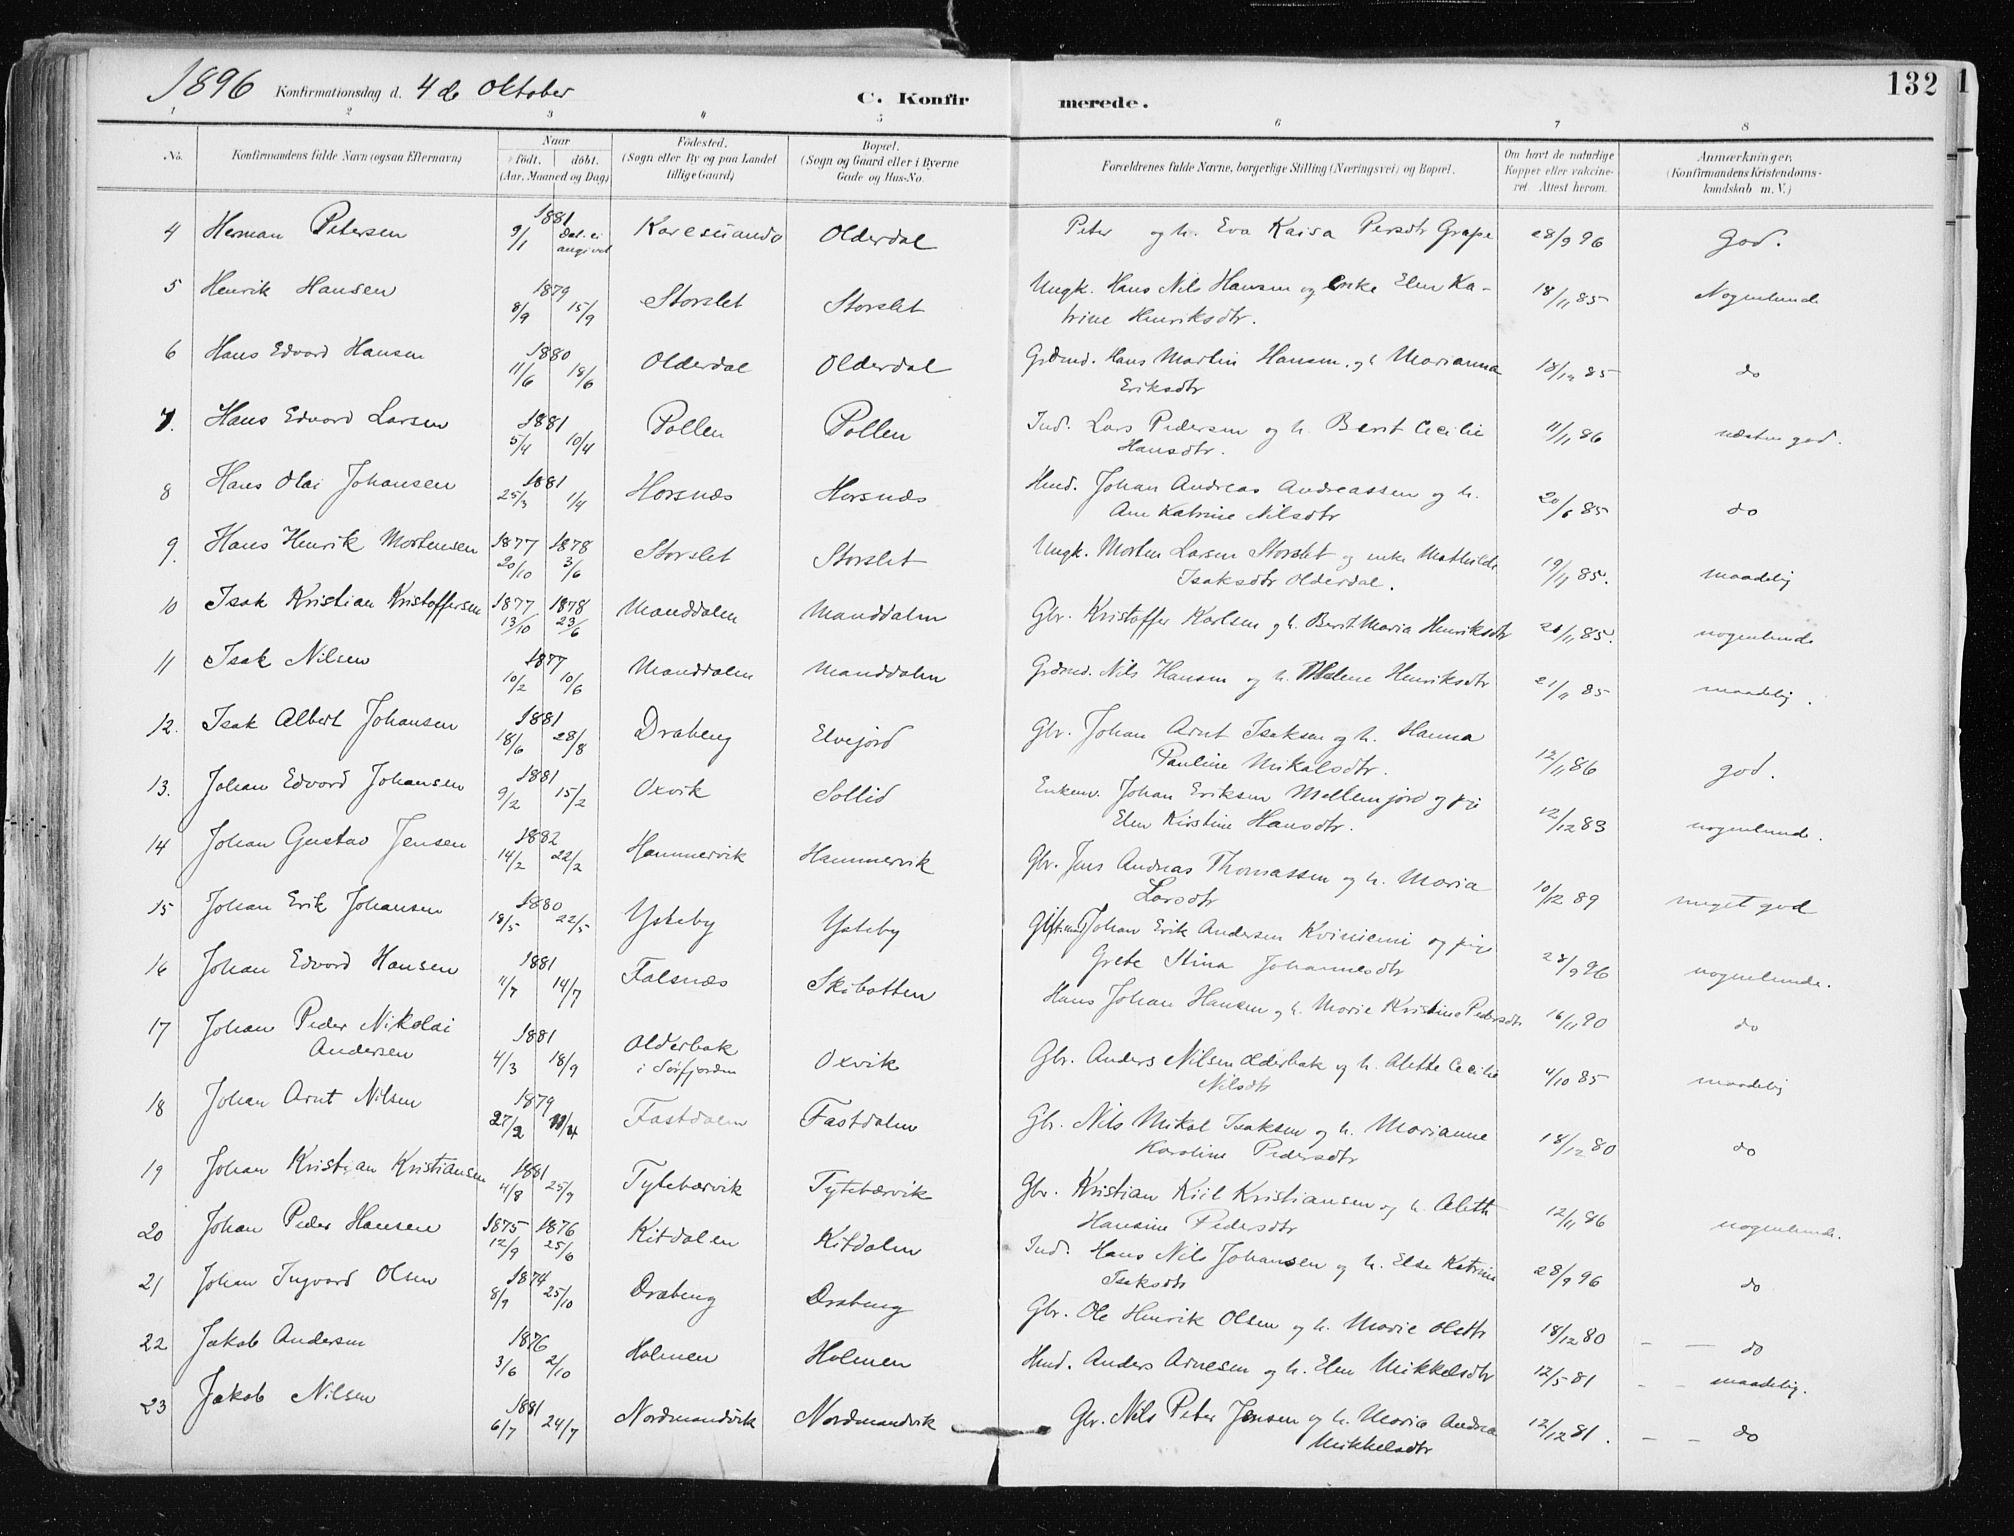 1896 Konfirmationsdag d. 4de Oktober C. Konfir merede. 132
1 2 3 4 5 6 7 8
No. Konfirmandens fulde Navn (ogsaa Efternavn) Naar födt. döbt. (Aar, Maaned og Dag) Födested. (Sogn eller By og paa Landet tillige Gaard) Bopæl. (Sogn og Gaard eller i Byerne Gade og Hus-No. Forældrenes fulde Navne, borgerlige Stilling (Næringsvei) og Bopæl. Om havt de naturlige Kopper eller vakcineret. Attest herom. Anmærkninger. (Konfirmandens Kristendomskundskab m. V.)
4 Herman Petersen 1881 9/1 Dat. ei angivet Karesuando Olderdal Peter og h. Eva Kaisa Persdtr Grape 28/9 96 God.
5 Henrik Hansen 1879 8/9 15/9 Storslet Storslet Ungk. Hans Nils Hansen og enke Elen Ka-
trine Henriksdtr. 18/11 85 Nogenlunde
6 Hans Edvard Hansen 1880 11/6 18/6 Olderdal Olderdal Grdmd. Hans Martin Hansen og h. Marianna
Eriksdtr 85 do
7. Hans Edvard Larsen 1881 5/4 10/4 Pollen Pollen Ind. Lars Pedersen og h. Berit Cecilie
Hansdtr. 11/11 86 næsten god.
8 Hans Olai Johansen 1881 25/3 1/4 Horsnæs Horsnæs Hmd. Johan Andreas Andreassen og h.
Ane Katrine Nilsdtr 20/6 85 do
9. Hans Henrik Mortensen 1877 20/10 1878 3/6 Storslet Storslet Ungk. Morten Larsen Storslet og enke Mathilde
Isaksdtr Olderdal. 19/11 85. maadelig
10 Isak Kristian Kristoffersen 1877 13/10 1878 23/6 Manddalen Manddalen Gbr. Kristoffer Karlsen og h. Berit Maria Henriksdtr 20/11 85. nogenlunde
11 Isak Nilsen 1877 10/2 10/6 Manddalen Manddalen Grdmd. Nils Hansen og h. Malene Henriksdtr 21/11 85 maadelig.
12. Isak Albert Johansen 1881 18/6 28/8 Drabeng Elvejord Gbr. Johan Arnt Isaksen og h. Hanna
Pauline Mikalsdtr. 12/11 86 god.
13. Johan Edvard Johansen 1881 9/2 15/2 Oxvik Sollid Enkem. Johan Eriksen Mellemjord og pi
Elen Kirstine Hansdtr. 12/12 83 nogenlunde.
14 Johan Gustav Jensen 1882 14/2 22/2 Hammervik Hammervik Gbr. Jens Andreas Thomassen og h. Maria
Larsdtr 10/12 89 meget god
15 Johan Erik Johansen 1880 18/5 22/5 Ysteby Ysteby Giftmd Johan Erik Andersen Kviniemi og pige
Grete Stina Johannesdtr 28/9 96 nogenlunde.
16 Johan Edvard Hansen 1881 7/7 14/7 Falsnæs Skibotten Hans Johan Hansen og h. Marie Kristine Pedersdtr 16/11 90 do
17 Johan Peder Nikolai
Andersen 1881 4/3 18/9 Olderbak i Sörfjorden Oxvik Gbr. Anders Nilsen Olderbak og h. Alette Cecilie
Nilsdtr 4/10 85 maadelig
18 Johan Arnt Nilsen 1879 27/2 11/4 Fastdalen Fastdalen Gbr. Nils Mikal Isaksen og h. Marianne
Karoline Pedersdtr 18/12 80 do
19 Johan Kristian Kristiansen 1881 4/8 25/9 Tytebærvik Tytebærvik Gbr. Kristian Kiil Kristiansen og h. Aleth
Hansine Pedersdtr 12/11 86 nogenlunde.
20 Johan Peder Hansen 1875 12/9 1876 25/6 Kitdalen Kitdalen Ind. Hans Nils Johansen og h. Else Katrine
Isaksdtr 28/9 96 do
21 Johan Ingvard Olsen 1874 8/9 25/10 Drabeng Drabeng Gbr. Ole Henrik Olsen og h. Marie Olsdtr 18/12 80 – – do
22 Jakob Andersen 1876 3/6 2/10 Holmen Holmen Hmd. Anders Arnesen og h. Elen Mikkelsdtr 12/5 81 – – maadelig.
23 Jakob Nilsen 1881 6/7 24/7 Nordmandvik Nordmandvik Gbr. Nils Peter Jensen og h. Maria Andrea
Mikkelsdtr 12/12 81. – – do